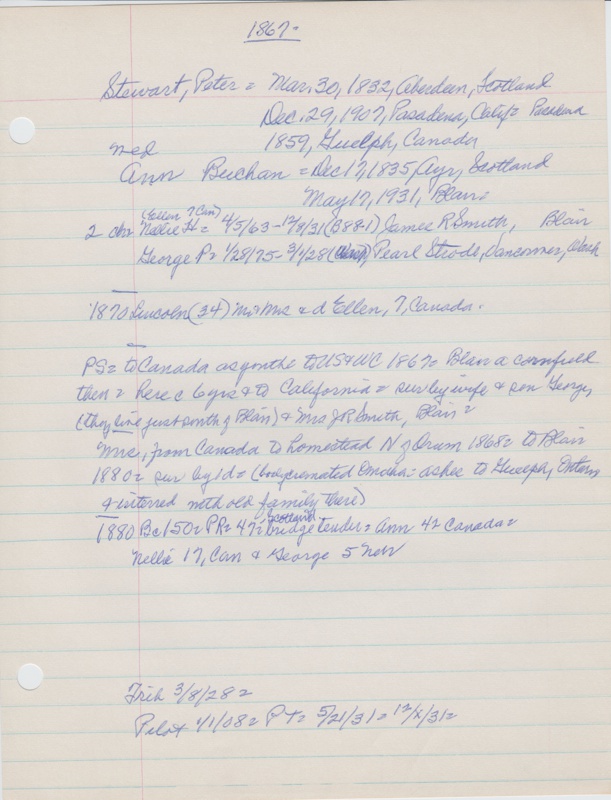 1867=
Stewart, Peter = Mar. 30, 1832, Aberdeen, Scotland
Dec. 29, 1907, Pasadena, Calif = Pasadena
1859, Guelph, Canada
med
Ann Buchan = Dec 17, 1835, Ayr, Scotland
May 17, 1931, Blair=
(Ellen 7 Can)
2 chr Nellie H = 4/5/63 - 12/8/31 (B88-1) James R Smith, Blair
George P = 1/28/75 - 3/4/28 Pearl Strode, Vancouver, Wash
1870 Lincoln (34) Mr & Mrs & d Ellen, 7, Canada.
PS = to Canada as youth & to US & WC 1867 = Blair a cornfield
then = here c 6 yrs & to California = sur by wife & son George,
(they live just south of Blair) & Mrs J R Smith, Blair =
Mrs, from Canada to homestead N of Orum 1868 = to Blair
1880 = sur by 1 d = (body cremated Omaha = ashes to Guelph, Ontario
& interred with old family there)
Scotland
1880 Bc 150 = PR = 47 = bridge tender = Ann 42 Canada =
Nellie 17, Can & George 5 Neb
Trib 3/8/28 =
Pilot 1/1/08 = PT = 5/21/31 = 12/X/31 =